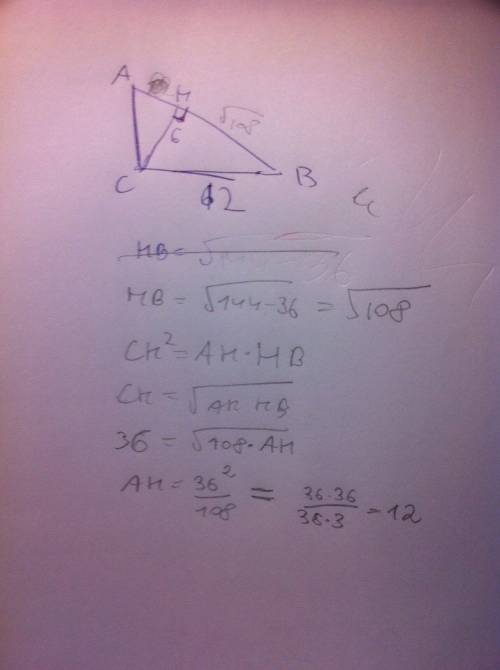 A
H
√108
6
C
B
12
HB = √
HB = √144-36 = √108
CH² = AH·HB
CH = √AH HB
36 = √108·AH
AH = 36²/108 = 36·36/36·3 = 12